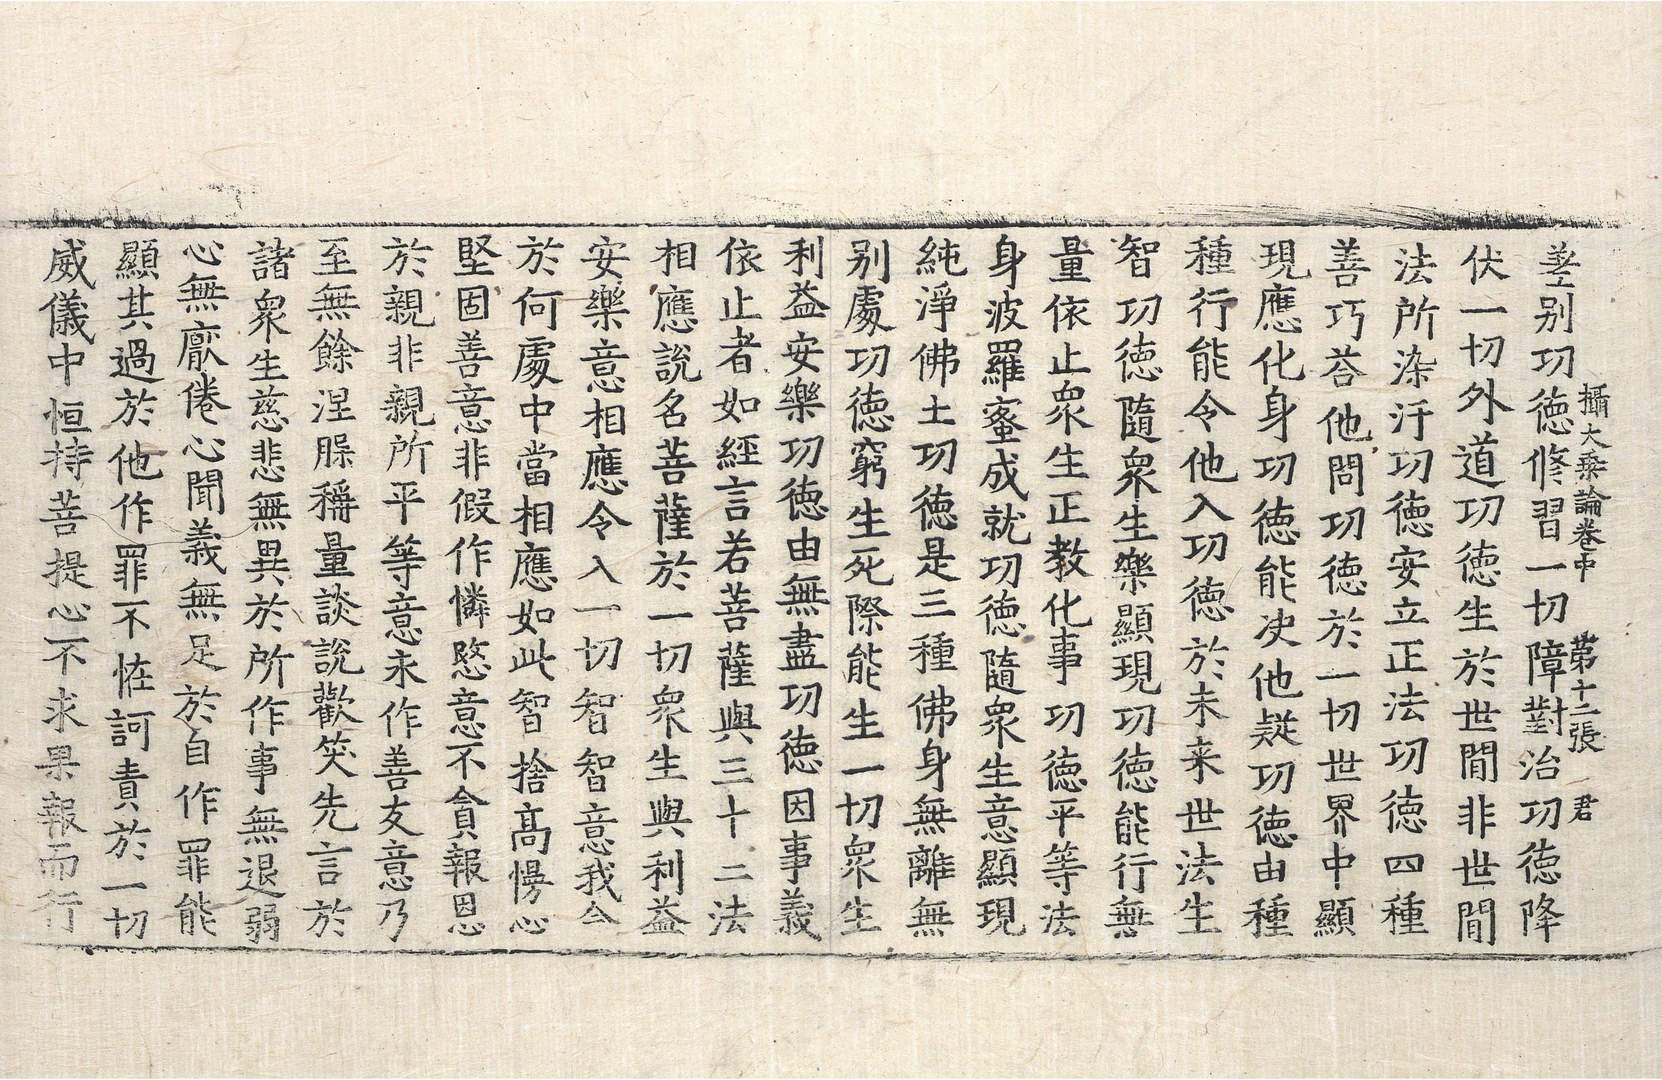 攝大乘論卷中 第十二張 君
差別功德修習一切障對治功德降
伏一切外道功德生於世間非世間
法所染汙功德安立正法功德四種
善巧荅他問功德於一切世界中顯
現應化身功德能决他疑功德由種
種行能令他入功德於未来世法生
智功德隨衆生樂顯現功德能行無
量依止衆生正教化事功德平等法
身波羅蜜成就功德隨衆生意顯現
純淨佛土功德是三種佛身無離無
别處功德窮生死際能生一切衆生
利益安樂功德由無盡功德因事義
依止者如經言若菩薩與三十二法
相應說名菩薩於一切衆生與利益
安樂意相應令入一切智智意我今
於何處中當相應如此智捨高慢心
堅固善意非假作憐愍意不貪報恩
於親非親所平等意永作善友意乃
至無餘涅槃稱量談說歡笑先言於
諸衆生慈悲無異於所作事無退弱
心無厭倦心聞義無足於自作罪能
顯其過於他作罪不恠訶責於一切
威儀中恒持菩提心不求果報而行